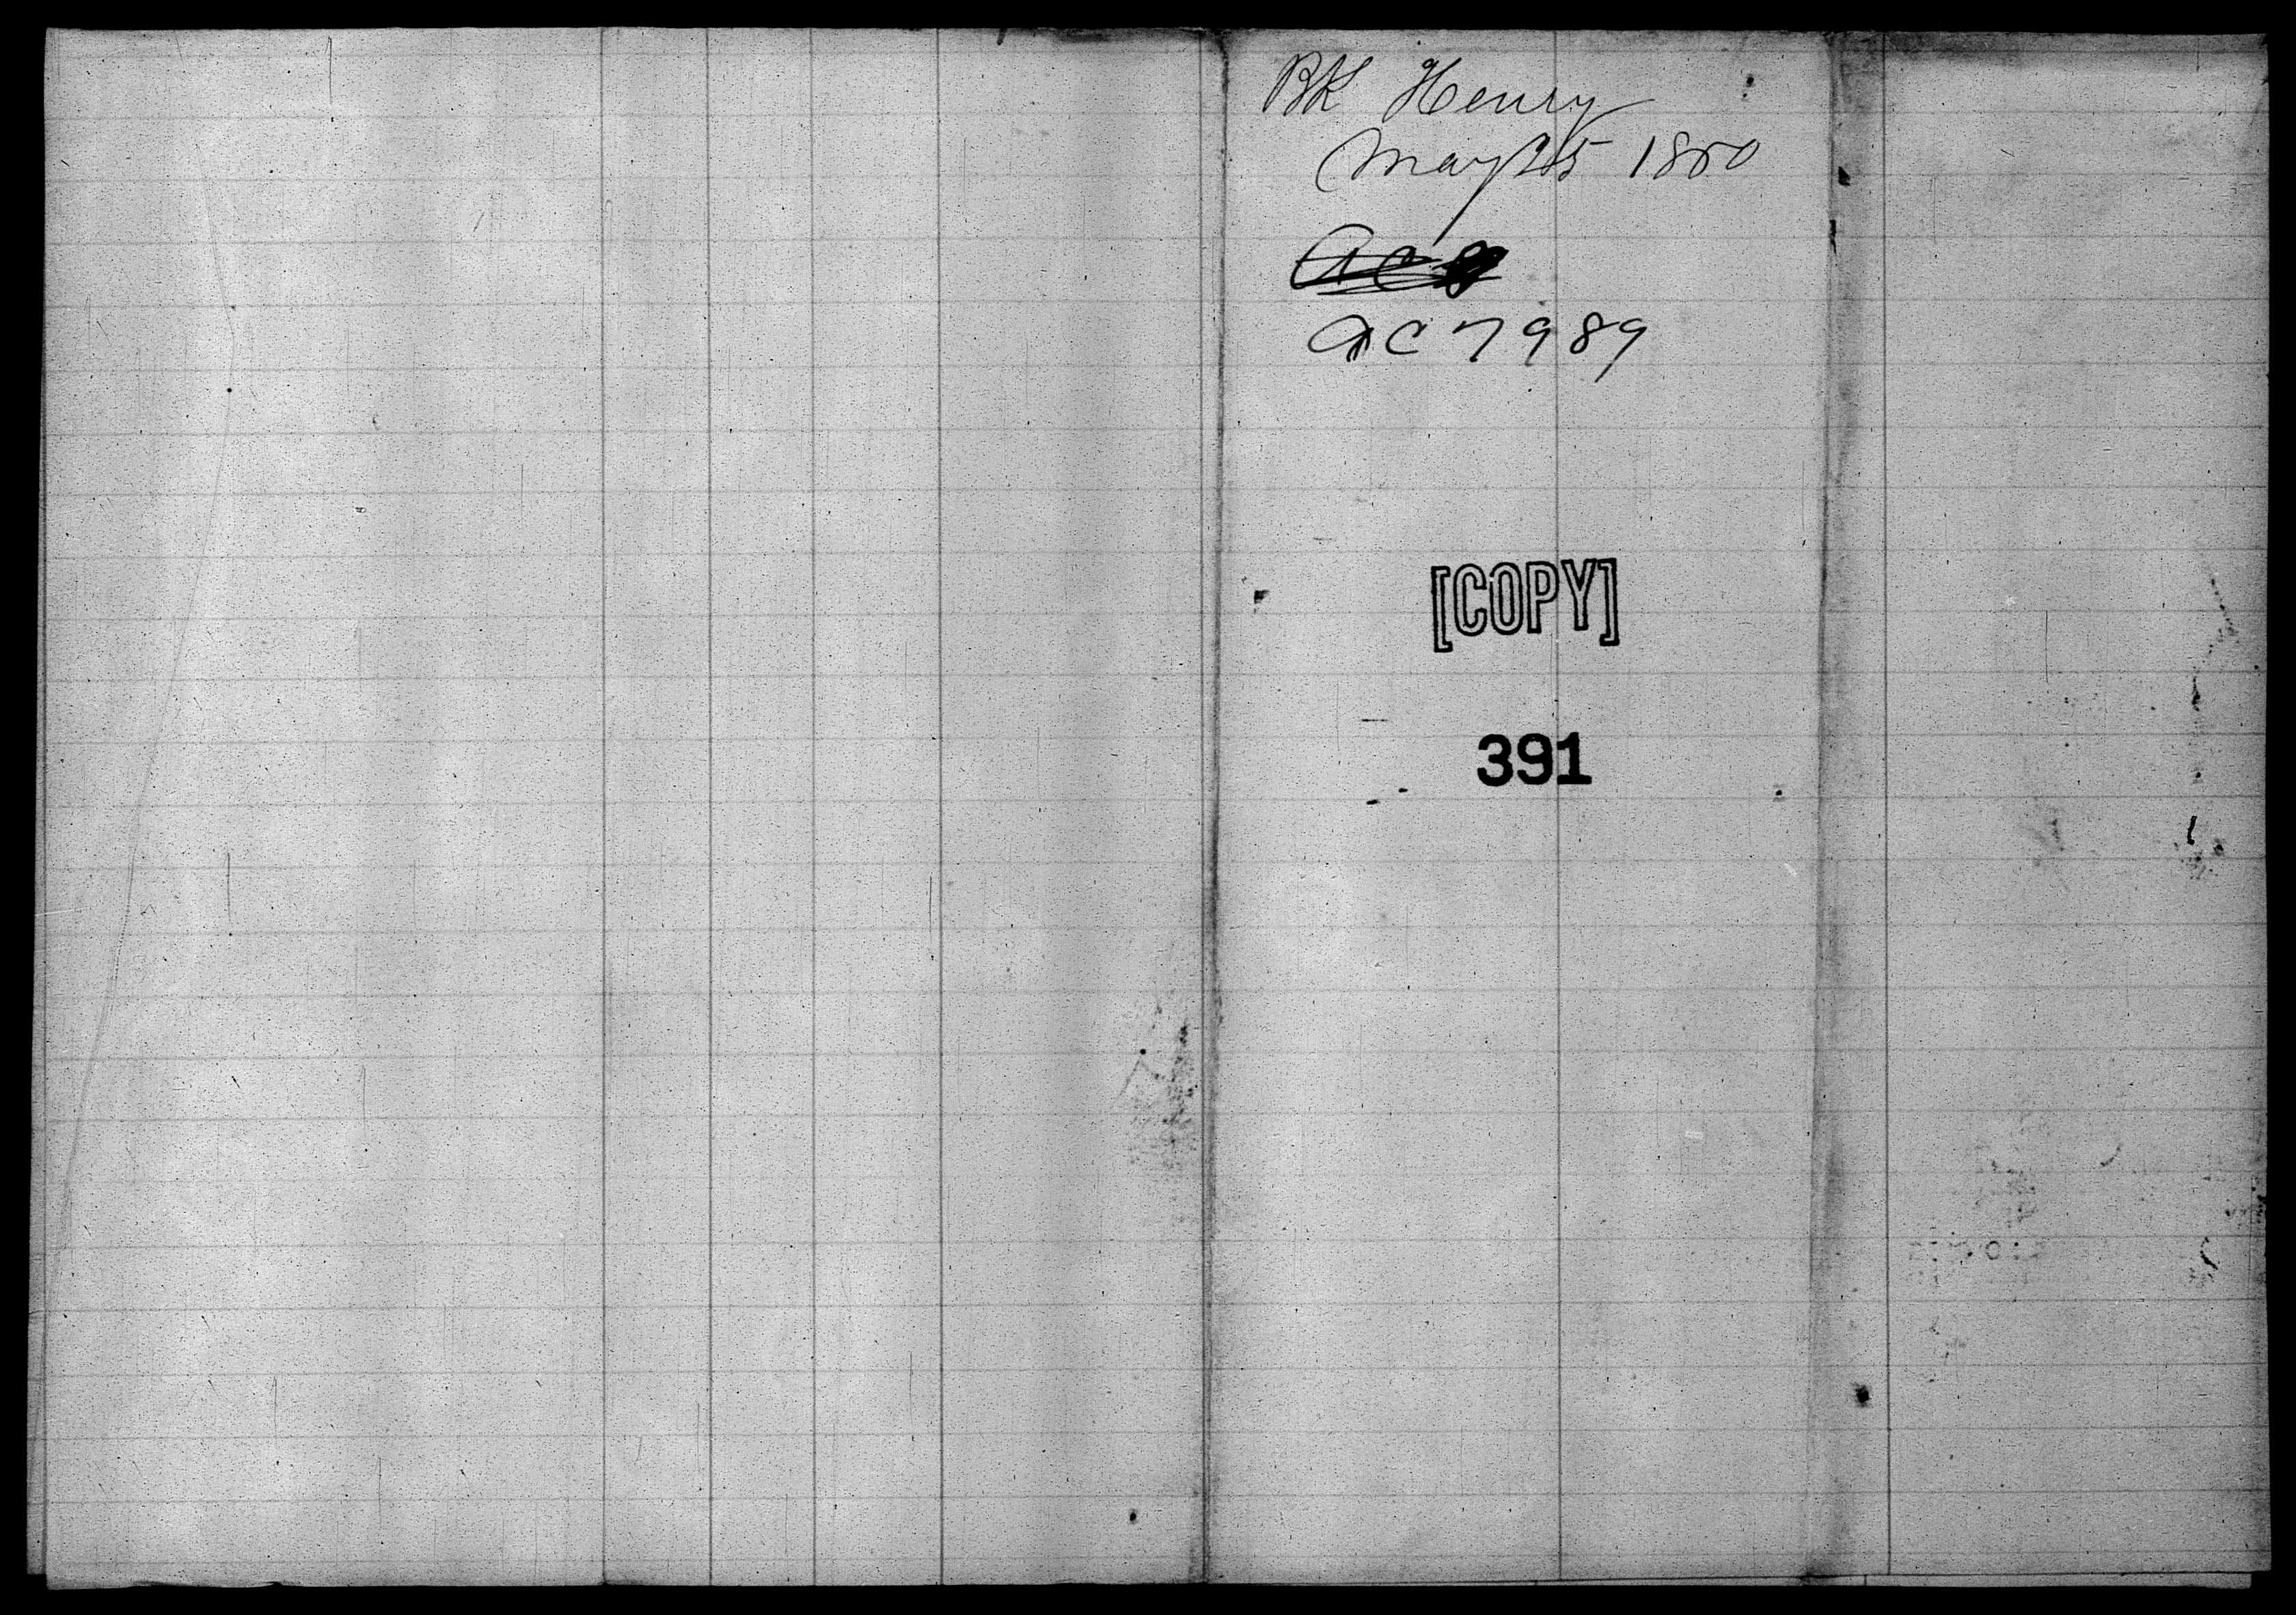 BK Henry
May 25 1880
AC 8
AC 7989
[COPY]
391